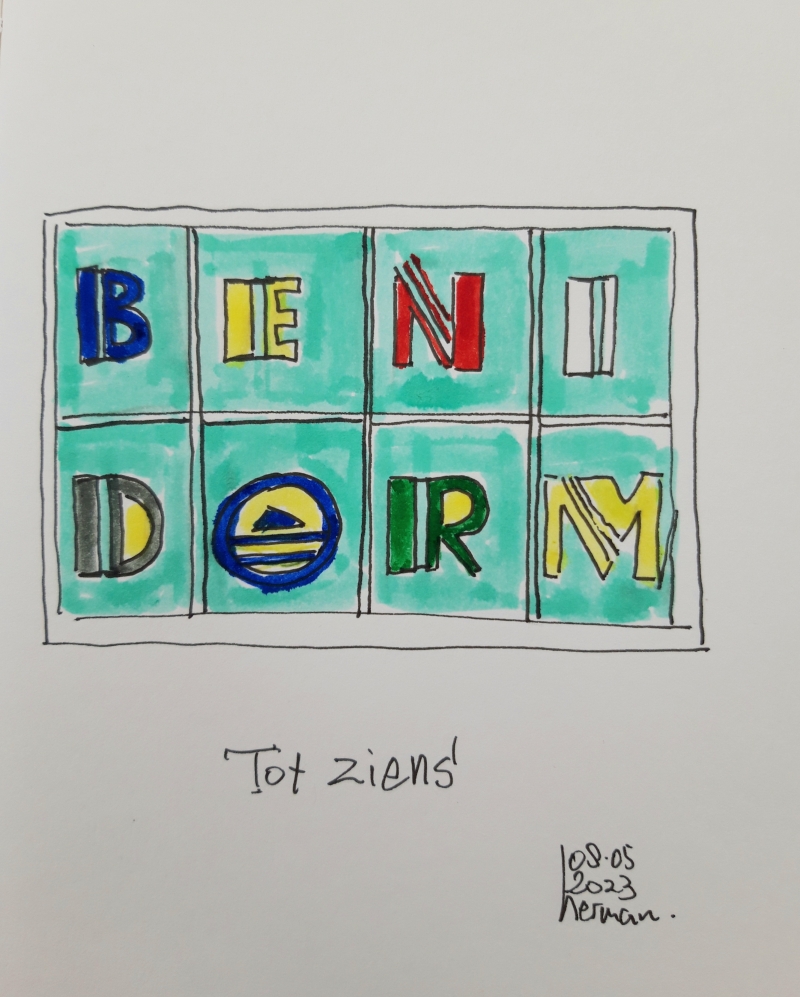 BENI
DORM
Tot ziens
08.05
2023
herman.